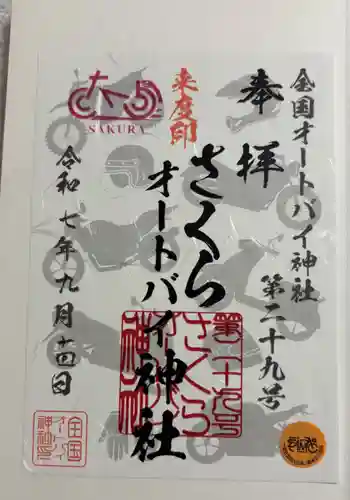 全国オートバイ神社
第二十九号
奉拝
来度印
さくら
オートバイ神社
SAKURA
令和七年九月十四日
第二十九号
さくら
オートバイ
神社
全国
オートバイ
神社印